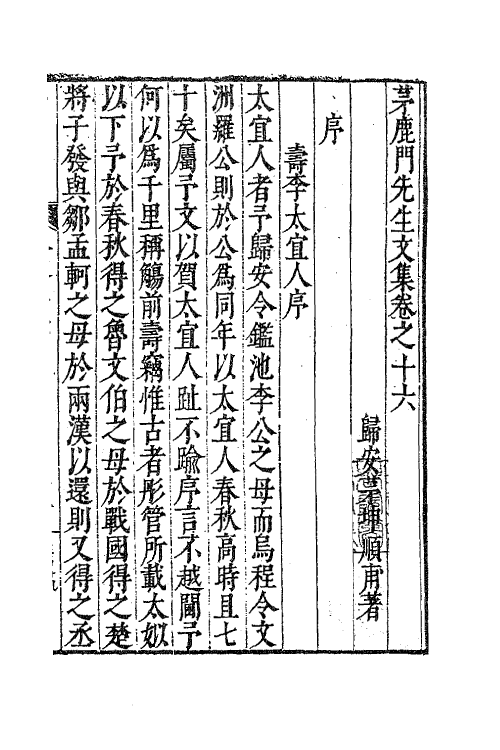 茅鹿門先生文集卷之十六
歸安茅坤順甫著
序
壽李太宜人序
太宜人者予歸安令鑑池李公之母而烏程令文
洲羅公則於公為同年以太宜人春秋高時且七
十矣屬予文以賀太宜人趾不踰序言不越閫予
何以為千里稱觴前壽竊惟古者彤管所載太姒
以下予於春秋得之魯文伯之母於戰國得之楚
將子發與鄒孟軻之母於兩漢以還則又得之丞